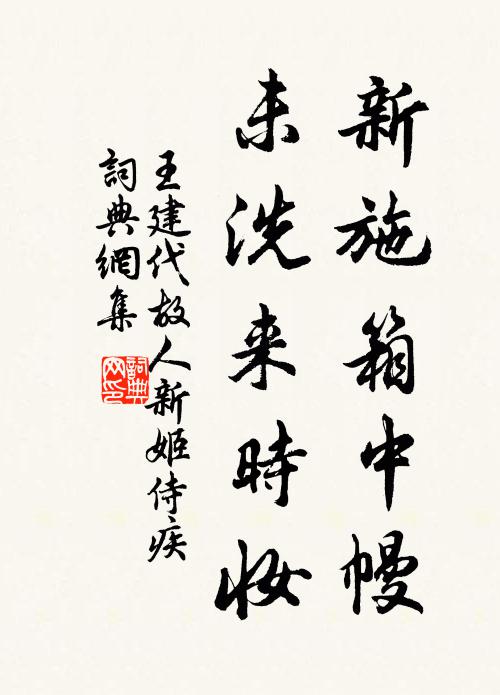 新施箱中幔
未洗来時妆
王建代故人新姬侍疾
詞典網集
詞典網印